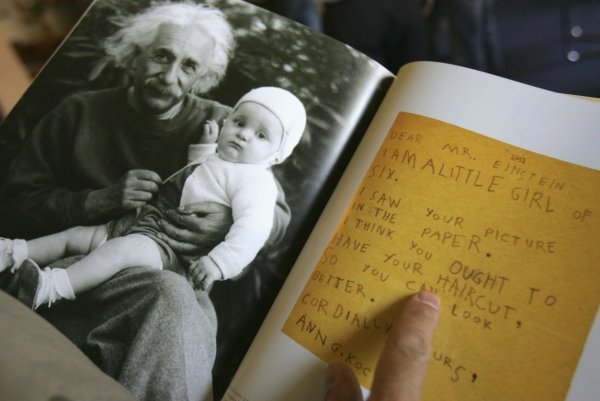 1951
DEAR MR. EINSTEIN
I AM A LITTLE GIRL OF
SIX.
I SAW YOUR PICTURE
IN THE PAPER.
I THINK YOU OUGHT TO
HAVE YOUR HAIRCUT,
SO YOU CAN LOOK
BETTER.
CORDIALLY YOURS,
ANN G.